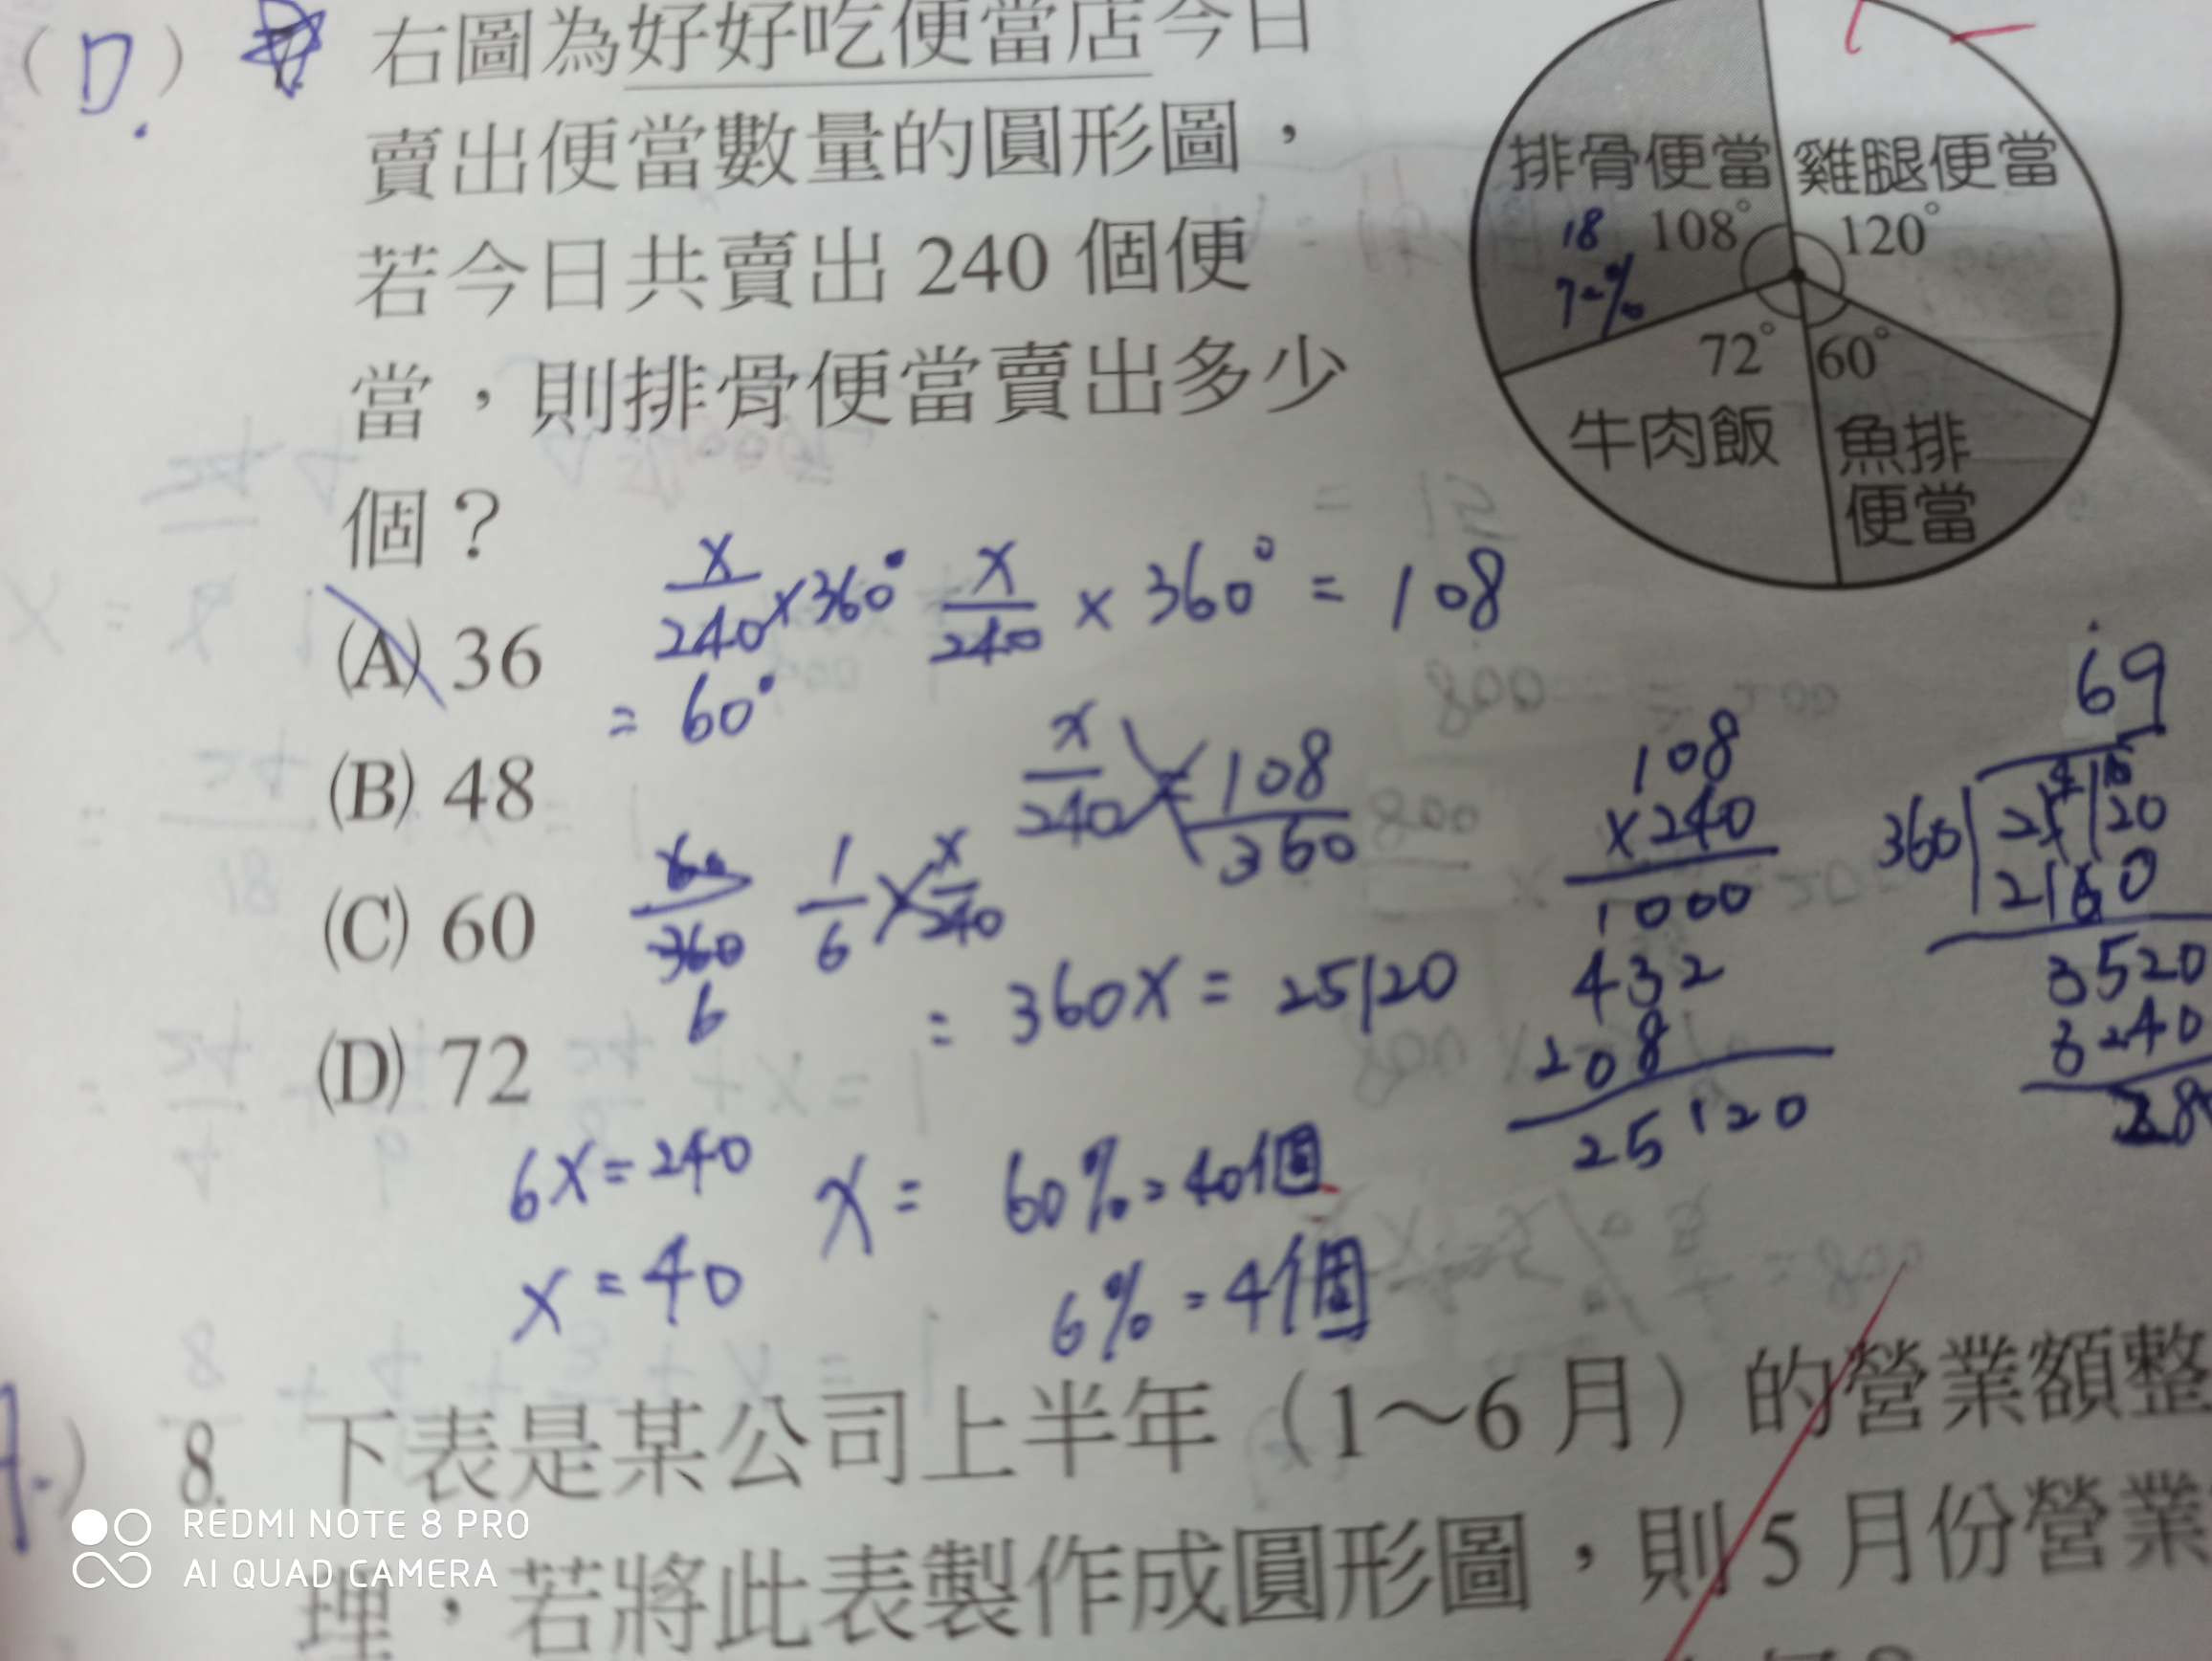 (D.) 7. 右圖為好好吃便當店今日
賣出便當數量的圓形圖，
若今日共賣出 240 個便
當，則排骨便當賣出多少
個？
(A) 36
(B) 48
(C) 60
(D) 72
排骨便當
18
72%
108°
雞腿便當
120°
72°
牛肉飯
60°
魚排
便當
x/240 ×360°
= 60°
x/240 × 360° = 108
x/240 = 108/360
60/360
6
1/6 x/240
= 360x = 25120
6x = 240
x = 40
x =
60% = 40個
6% = 4個
108
×240
1000
432
208
25120
69
360
25120
2160
3520
3240
8. 下表是某公司上半年（1～6 月）的營業額整
理，若將此表製作成圓形圖，則 5 月份營業
REDMI NOTE 8 PRO
AI QUAD CAMERA